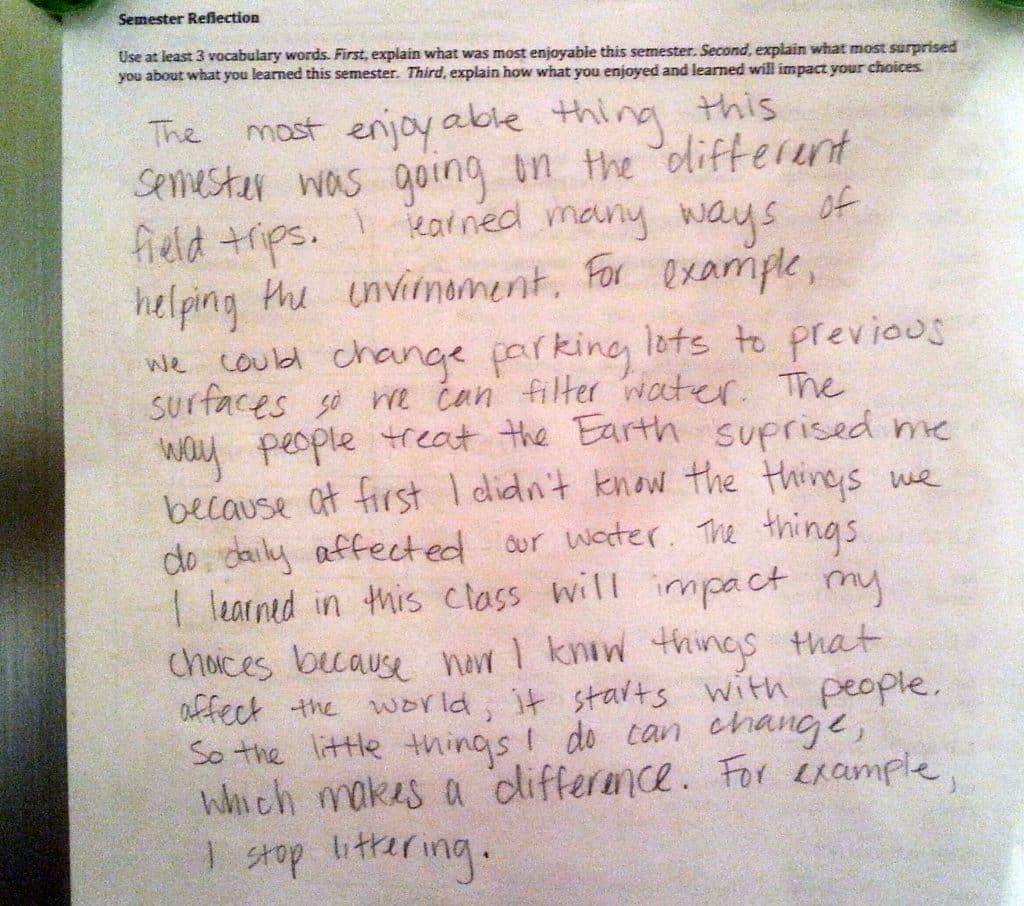 Semester Reflection
Use at least 3 vocabulary words. First, explain what was most enjoyable this semester. Second, explain what most surprised
you about what you learned this semester. Third, explain how what you enjoyed and learned will impact your choices.
The most enjoyable thing this
semester was going on the different
field trips. I learned many ways of
helping the envirnoment. For example,
we could change parking lots to previous
surfaces so we can filter water. The
way people treat the Earth suprised me
because at first I didn't know the things we
do daily affected our water. The things
I learned in this class will impact my
choices because now I know things that
affect the world, it starts with people.
So the little things I do can change,
which makes a difference. For example,
I stop littering.